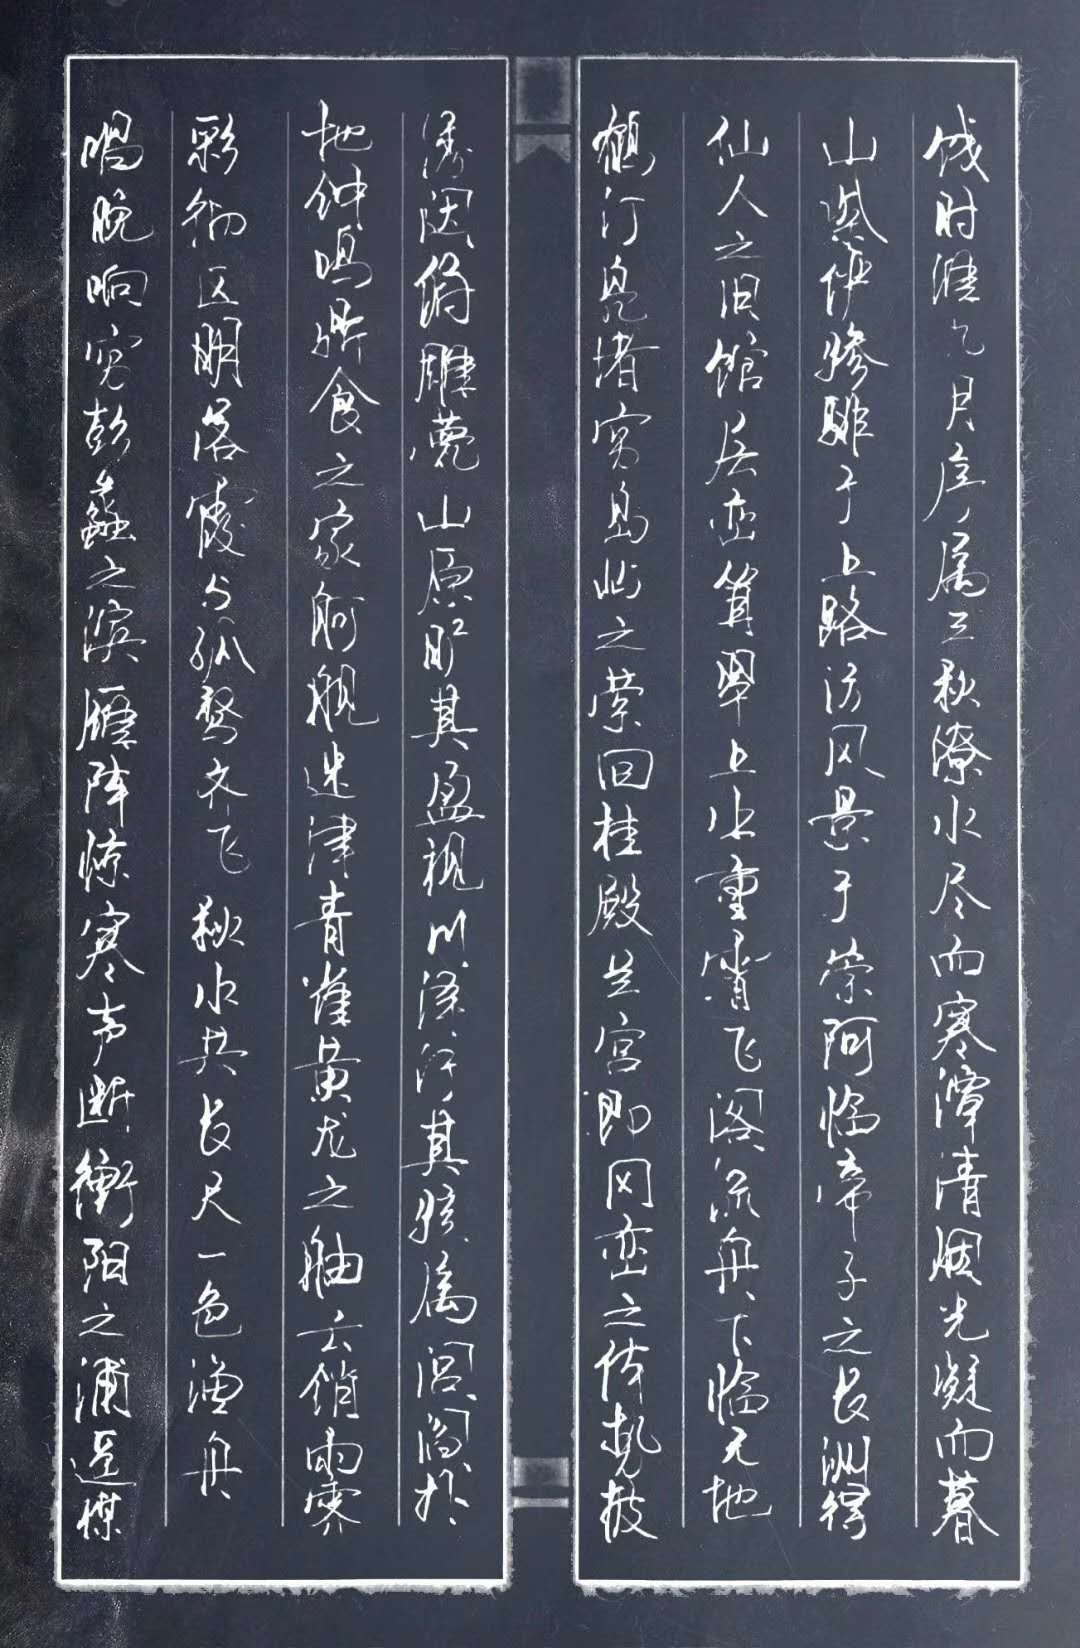 饯时维九月序属三秋潦水尽而寒潭清烟光凝而暮
山紫俨骖騑于上路访风景于崇阿临帝子之长洲得
仙人之旧馆层峦耸翠上出重霄飞阁流丹下临无地
鹤汀凫渚穷岛屿之萦回桂殿兰宫即冈峦之体势披
绣闼俯雕甍山原旷其盈视川泽纡其骇属闾阎扑
地钟鸣鼎食之家舸舰迷津青雀黄龙之舳云销雨霁
彩彻区明落霞与孤鹜齐飞秋水共长天一色渔舟
唱晚响穷彭蠡之滨雁阵惊寒声断衡阳之浦遥襟